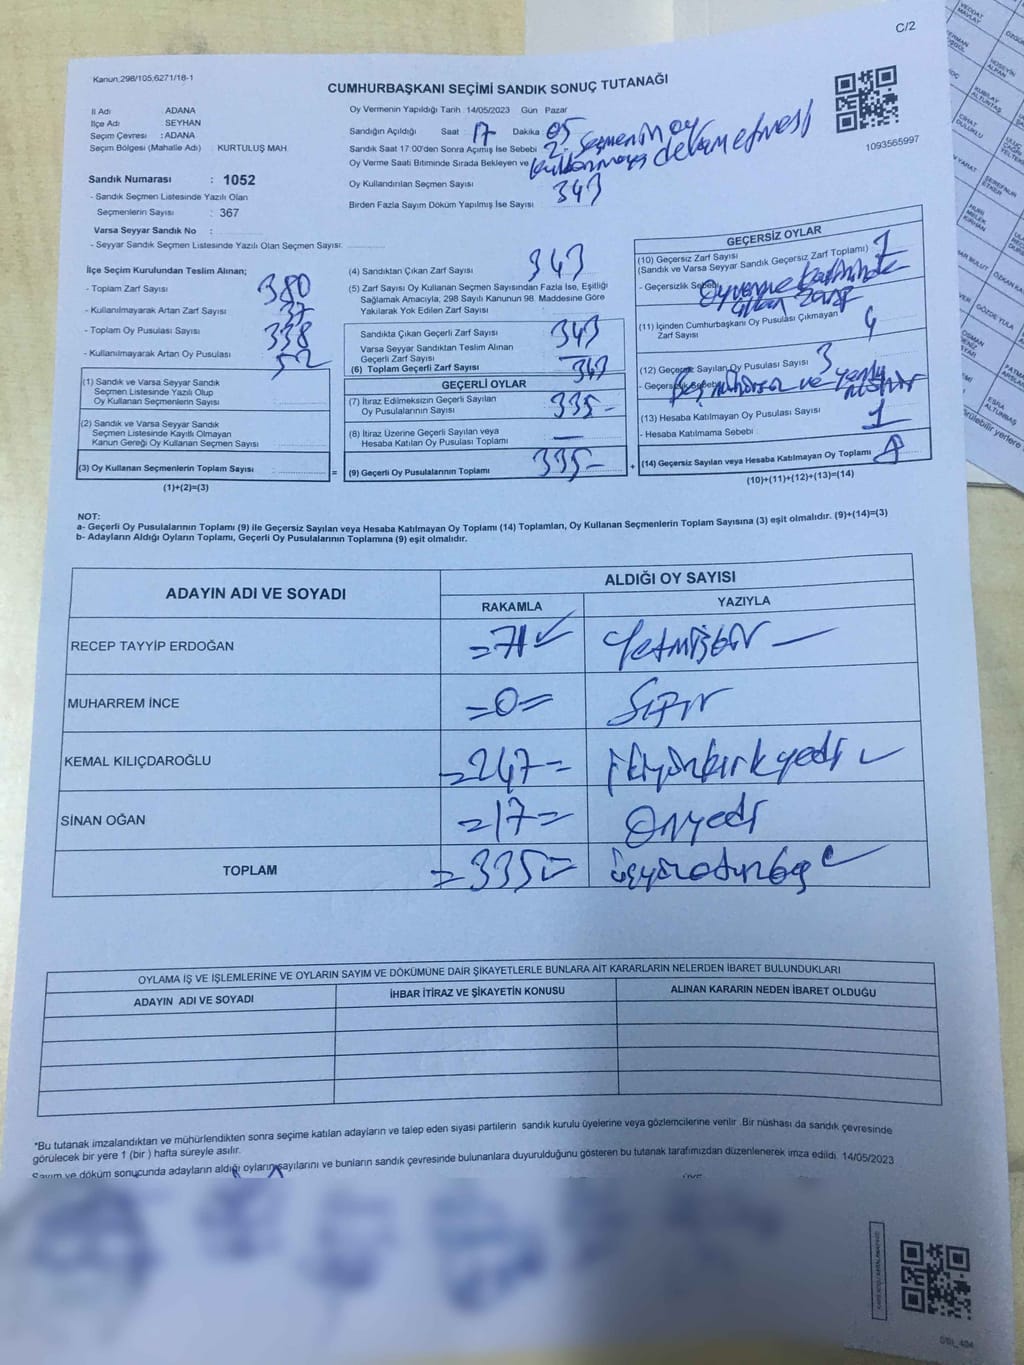 C/2
Kanun:298/105,6271/18-1
CUMHURBAŞKANI SEÇİMİ SANDIK SONUÇ TUTANAĞI
1093565997
İl Adı ADANA
İlçe Adı SEYHAN
Seçim Çevresi : ADANA
Seçim Bölgesi (Mahalle Adı) : KURTULUŞ MAH.
Sandık Numarası : 1052
- Sandık Seçmen Listesinde Yazılı Olan
Seçmenlerin Sayısı : 367
Varsa Seyyar Sandık No :
- Seyyar Sandık Seçmen Listesinde Yazılı Olan Seçmen Sayısı:
Oy Vermenin Yapıldığı Tarih :14/05/2023 Gün Pazar
Sandığın Açıldığı Saat : 17 Dakika : 05
Sandık Saat 17:00'den Sonra Açılmış İse Sebebi 2- seçmenin oy
Oy Verme Saati Bitiminde Sırada Bekleyen ve kullanmaya devam etmesi
Oy Kullandırılan Seçmen Sayısı 343
Birden Fazla Sayım Döküm Yapılmış İse Sayısı
İlçe Seçim Kurulundan Teslim Alınan;
- Toplam Zarf Sayısı 380
- Kullanılmayarak Artan Zarf Sayısı 37
- Toplam Oy Pusulası Sayısı 338
- Kullanılmayarak Artan Oy Pusulası 52
(1) Sandık ve Varsa Seyyar Sandık
Seçmen Listesinde Yazılı Olup
Oy Kullanan Seçmenlerin Sayısı
(2) Sandık ve Varsa Seyyar Sandık
Seçmen Listesinde Kayıtlı Olmayan
Kanun Gereği Oy Kullanan Seçmen Sayısı
(3) Oy Kullanan Seçmenlerin Toplam Sayısı =
(1)+(2)=(3)
(4) Sandıktan Çıkan Zarf Sayısı 343
(5) Zarf Sayısı Oy Kullanan Seçmen Sayısından Fazla İse, Eşitliği
Sağlamak Amacıyla, 298 Sayılı Kanunun 98. Maddesine Göre
Yakılarak Yok Edilen Zarf Sayısı
Sandıkta Çıkan Geçerli Zarf Sayısı 343
Varsa Seyyar Sandıktan Teslim Alınan
Geçerli Zarf Sayısı
(6) Toplam Geçerli Zarf Sayısı 343
GEÇERLİ OYLAR
(7) İtiraz Edilmeksizin Geçerli Sayılan
Oy Pusulalarının Sayısı 335-
(8) İtiraz Üzerine Geçerli Sayılan veya
Hesaba Katılan Oy Pusulası Toplamı —
(9) Geçerli Oy Pusulalarının Toplamı 335- +
GEÇERSİZ OYLAR
(10) Geçersiz Zarf Sayısı
(Sandık ve Varsa Seyyar Sandık Geçersiz Zarf Toplamı) 1
- Geçersizlik Sebebi
(11) İçinden Cumhurbaşkanı Oy Pusulası Çıkmayan
Zarf Sayısı 4
(12) Geçersiz Sayılan Oy Pusulası Sayısı 3
- Geçersizlik Sebebi
(13) Hesaba Katılmayan Oy Pusulası Sayısı 1
- Hesaba Katılmama Sebebi
(14) Geçersiz Sayılan veya Hesaba Katılmayan Oy Toplamı
(10)+(11)+(12)+(13)=(14)
NOT:
a- Geçerli Oy Pusulalarının Toplamı (9) ile Geçersiz Sayılan veya Hesaba Katılmayan Oy Toplamı (14) Toplamları, Oy Kullanan Seçmenlerin Toplam Sayısına (3) eşit olmalıdır. (9)+(14)=(3)
b- Adayların Aldığı Oyların Toplamı, Geçerli Oy Pusulalarının Toplamına (9) eşit olmalıdır.
ADAYIN ADI VE SOYADI ALDIĞI OY SAYISI
RAKAMLA YAZIYLA
RECEP TAYYİP ERDOĞAN =71 Yetmişbir
MUHARREM İNCE =0= Sıfır
KEMAL KILIÇDAROĞLU =247= ikiyüzkırkyedi
SİNAN OĞAN =17= Onyedi
TOPLAM =335= üçyüzotuzbeş
OYLAMA İŞ VE İŞLEMLERİNE VE OYLARIN SAYIM VE DÖKÜMÜNE DAİR ŞİKAYETLERLE BUNLARA AİT KARARLARIN NELERDEN İBARET BULUNDUKLARI
ADAYIN ADI VE SOYADI İHBAR İTİRAZ VE ŞİKAYETİN KONUSU ALINAN KARARIN NEDEN İBARET OLDUĞU
*Bu tutanak imzalandıktan ve mühürlendikten sonra seçime katılan adayların ve talep eden siyasi partilerin sandık kurulu üyelerine veya gözlemcilerine verilir .Bir nüshası da sandık çevresinde
görülecek bir yere 1 (bir ) hafta süreyle asılır.
Sayım ve döküm sonucunda adayların aldığı oyların sayılarını ve bunların sandık çevresinde bulunanlara duyurulduğunu gösteren bu tutanak tarafımızdan düzenlenerek imza edildi. 14/05/2023